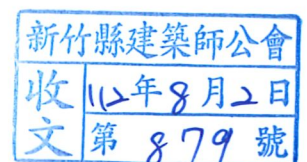 新竹縣建築師公會
收文
112年8月2日
第 879 號